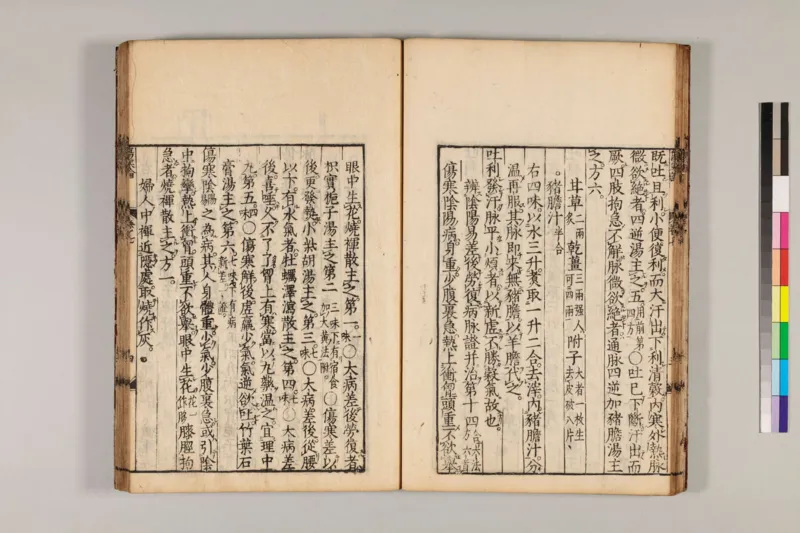 既吐且利小便復利而大汗出下利清穀内寒外熱脉
微欲絶者四逆湯主之五用前第四方○吐已下斷汗出而
厥四肢拘急不解脉微欲絶者通脉四逆加猪膽湯主
之方六
甘草二兩炙乾薑三兩强人可四兩附子大者一枚生去皮破八片
猪膽汁半合
右四味以水三升煮取一升二合去滓内猪膽汁分
温再服其脉即來無猪膽以羊膽代之
吐利發汗脉平小煩者以新虚不勝穀氣故也
辨陰陽易差後勞復病脉證并治第十四合六法方六首
傷寒陰陽易病身重少腹裏急熱上衝胸頭重不欲舉
眼中生花燒褌散主之第一一味○大病差後勞復者
枳實梔子湯主之第二三味下有宿食加大黄法附○傷寒差以
後更發熱小柴胡湯主之第三七味○大病差後從腰
以下有水氣者牡蠣澤瀉散主之第四七味○大病差
後喜唾久不了了胃上有寒當以丸藥温之宜理中
丸第五四味○傷寒解後虚羸少氣氣逆欲吐竹葉石
膏湯主之第六七味下有病新差一證
傷寒陰易之為病其人身體重少氣少腹裏急或引陰
中拘攣熱上衝胸頭重不欲舉眼中生花花一作眵膝脛拘
急者燒褌散主之方一
婦人中褌近隱處取燒作灰